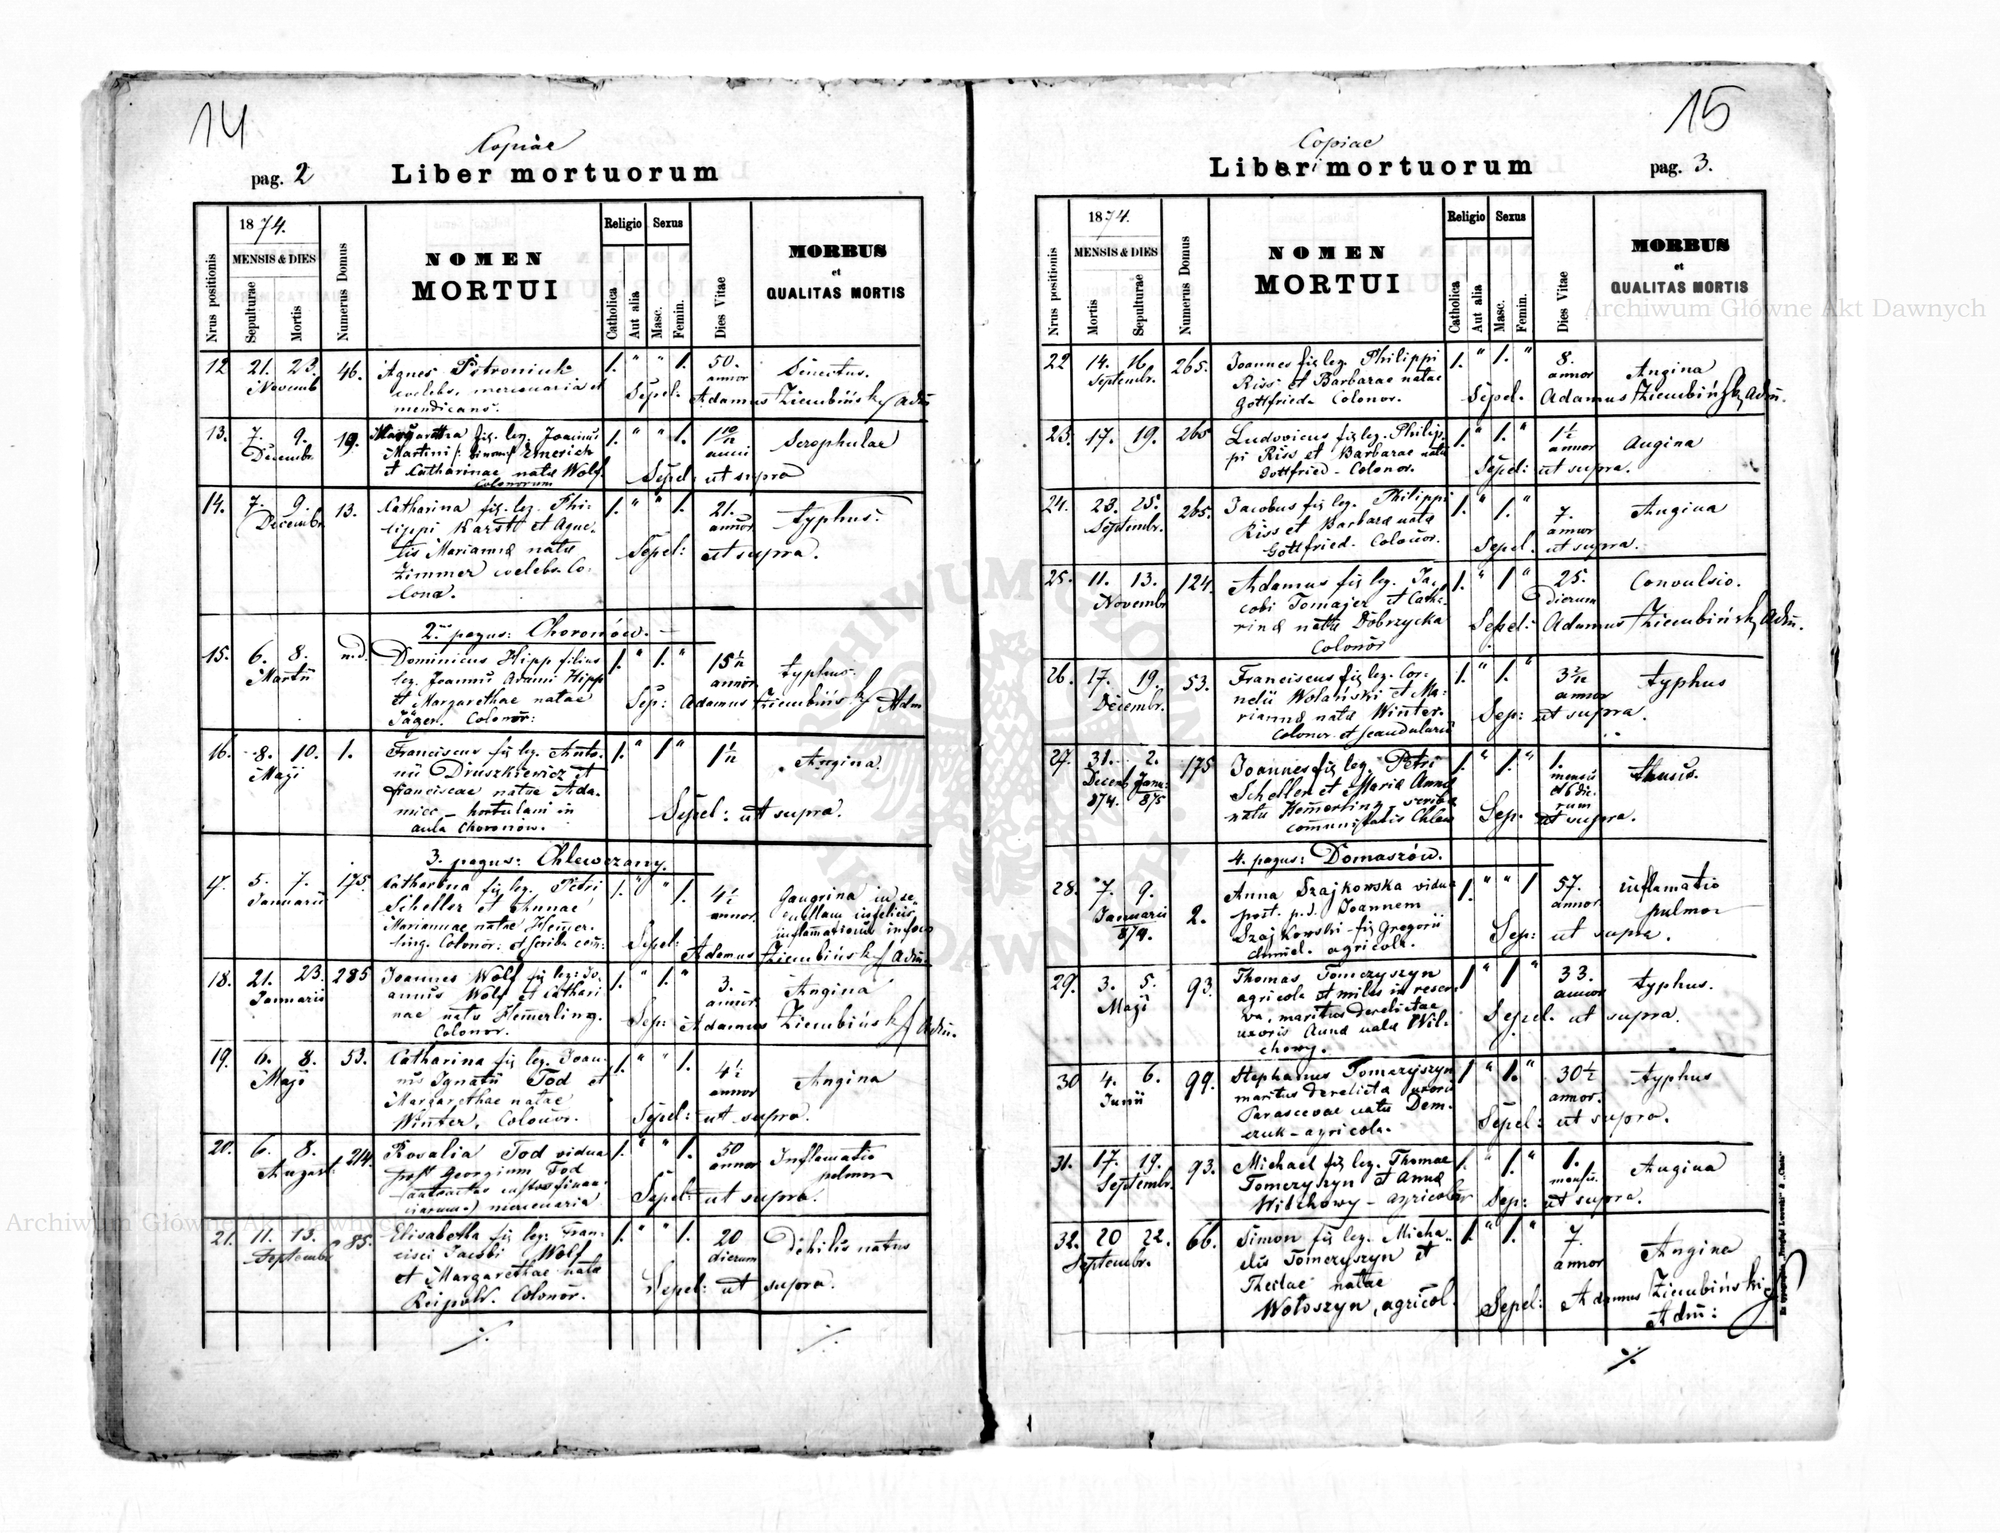 14
Copiae
pag. 2 Liber mortuorum
Nrus positionis
1874.
MENSIS & DIES
Sepulturae
Mortis
Numerus Domus
NOMEN
MORTUI
Religio
Catholica
Aut alia
Sexus
Masc.
Femin.
Dies Vitae
MORBUS
et
QUALITAS MORTIS
12 21. 23. 46. Agnes Petroniuk 1. " " 1. 50. Senectus.
Novemb. celebs, mercenaria et annor
mendicans. Sepel. Adamus Ziembiński Adm
13. 7. 9. 19. Margaretha fiż. leg. Joannis 1. " " 1. 1 10/12 Scrophulae
Decembr. Martini Emerich anni
et Catharinae nata Wolf Sepel: ut supra
Colonorum
14. 7. 9. 13. Catharina fiż. leg. Phi- 1. " " 1. 21. typhus.
Decembr. lippi Karst et Agne- annor
tis Marianna nata Sepel: ut supra.
Zimmer celebs. Co-
lona.
2. pagus: Choronów.
15. 6. 8. n.d. Dominicus Hipp filius 1. " 1. " 15 1/2 typhus.
Martii leg. Joannis Adami Hipp annor
et Margarethae natae Sep: Adamus Ziembiński Adm
Jäger. Colonor:
16. 8. 10. 1. Franciscus fiż leg. Anto- 1. " 1 " 1 1/2 Angina.
Maji nii Druszkiewicz et
Franciscae natae Ada-
miec hortulani in Sepel: ut supra.
aula Choronow.
3. pagus: Chlewczany.
17. 5. 7. 175. Catharina fiż leg. Petri 1. " " 1. 4 1/2 Gangrina in se-
Januarii Scheller et Annae annor.
Mariannae natae Hemer- Sepel:
ling. Colonor: et scriba com: Adamus Ziembiński Adm.
18. 21. 23. 285 Joannes Wolf fiż leg: Jo- 1. " 1. " 3. Angina
Januarii annis Wolf et Cathari- annor
nae nata Hemerling. Sep: Adamus Ziembiński Adm.
Colonor.
19. 6. 8. 53. Catharina fiż leg. Joan- 1. " " 1. 4 1/2 Angina
Maji nis Ignatii Tod et annor
Margarethae natae
Winter, Colonor. Sepel: ut supra.
20. 6. 8. 214. Rosalia Tod vidua 1. " " 1. 50 Inflamatio
August. post Georgium Tod annor pulmon
mercenaria Sepel: ut supra.
21. 11. 13. 85. Elisabetha fiż leg: Fran- 1. " " 1. 20 Debilis natus
Septembr. cisci Jacobi Wolf dierum
et Margarethae nata
Reipold. Colonor. Sepel: ut supra.
15
Copiae
Liber mortuorum pag. 3.
Nrus positionis
1874.
MENSIS & DIES
Mortis
Sepulturae
Numerus Domus
NOMEN
MORTUI
Religio
Catholica
Aut alia
Sexus
Masc.
Femin.
Dies Vitae
MORBUS
et
QUALITAS MORTIS
22 14. 16 265. Joannes fiż leg. Philippi 1. " 1. " 8. Angina
Septembr. Riss et Barbarae natae annor
Gottfried. Colonor. Sepel. Adamus Ziembiński Adm.
23. 17. 19. 265 Ludovicus fiż leg. Philip- 1. " 1. " 1 1/2 Angina
pi Riss et Barbarae nata annor
Gottfried - Colonor. Sepel: ut supra.
24. 23. 25. 265. Jacobus fiż leg. Philippi 1. " 1. " 7. Angina
Septembr. Riss et Barbara nata annor
Gottfried. Colonor. Sepel. ut supra.
25. 11. 13. 124. Adamus fiż leg. Ja- 1. " 1 " 25. Convulsio.
Novembr. cobi Tomajer et Catha- dierum
rina nata Dobrzycka Sepel: Adamus Ziembiński Adm.
Colonor
26. 17. 19. 53. Franciscus fiż leg. Cor- 1. " 1. " 3 2/12 typhus
Decembr. nelii Wolański et Ma- annor
rianna nata Winter. Sep: ut supra.
Colonor et scandularii
27. 31. 2. 175 Joannes fiż leg. Petri 1. " 1. " 1. tussis.
Decemb. Janu: Scheller et Maria Anna mensis
874. 875 nata Hemerling, scriba et 6 die-
communitatis Chlew Sep. rum
ut supra.
4. pagus: Domaszów.
28. 7. 9. 2. Anna Szajkowska vidua 1. " " 1 57. inflamatio
Januarii post. p.d. Joannem annor. pulmon
874. Szajkowski fiż Gregorii Sep: ut supra.
agricola.
29. 3. 5. 93. Thomas Tomczyszyn 1 " 1. " 33. typhus.
Maji agricola et miles in reser- annor
va, maritus derelictae Sepel. ut supra.
uxoris Anna nata Wil-
chowy.
30 4. 6. 99. Stephanus Tomczyszyn 1 " 1. " 30 1/2 typhus
Junii maritus derelicta uxoris annor.
Parascevae nata Dem-
czuk - agricola. Sepel: ut supra.
31. 17. 19. 93. Michael fiż leg. Thomae 1. " 1. " 1. Angina
Septembr. Tomczyszyn et Anna mensis.
Wilchowy - agricolar Sep: ut supra.
32. 20 22. 66. Simon fiż leg. Micha- 1. " 1. " 7. Angina
Septembr. elis Tomczyszyn et annor
Theclae natae
Wołoszyn, agricol. Sepel: Adamus Ziembiński
Adm:
Archiwum Główne Akt Dawnych
Archiwum Główne Akt Dawnych
ARCHIWUM GŁÓWNE AKT DAWNYCH